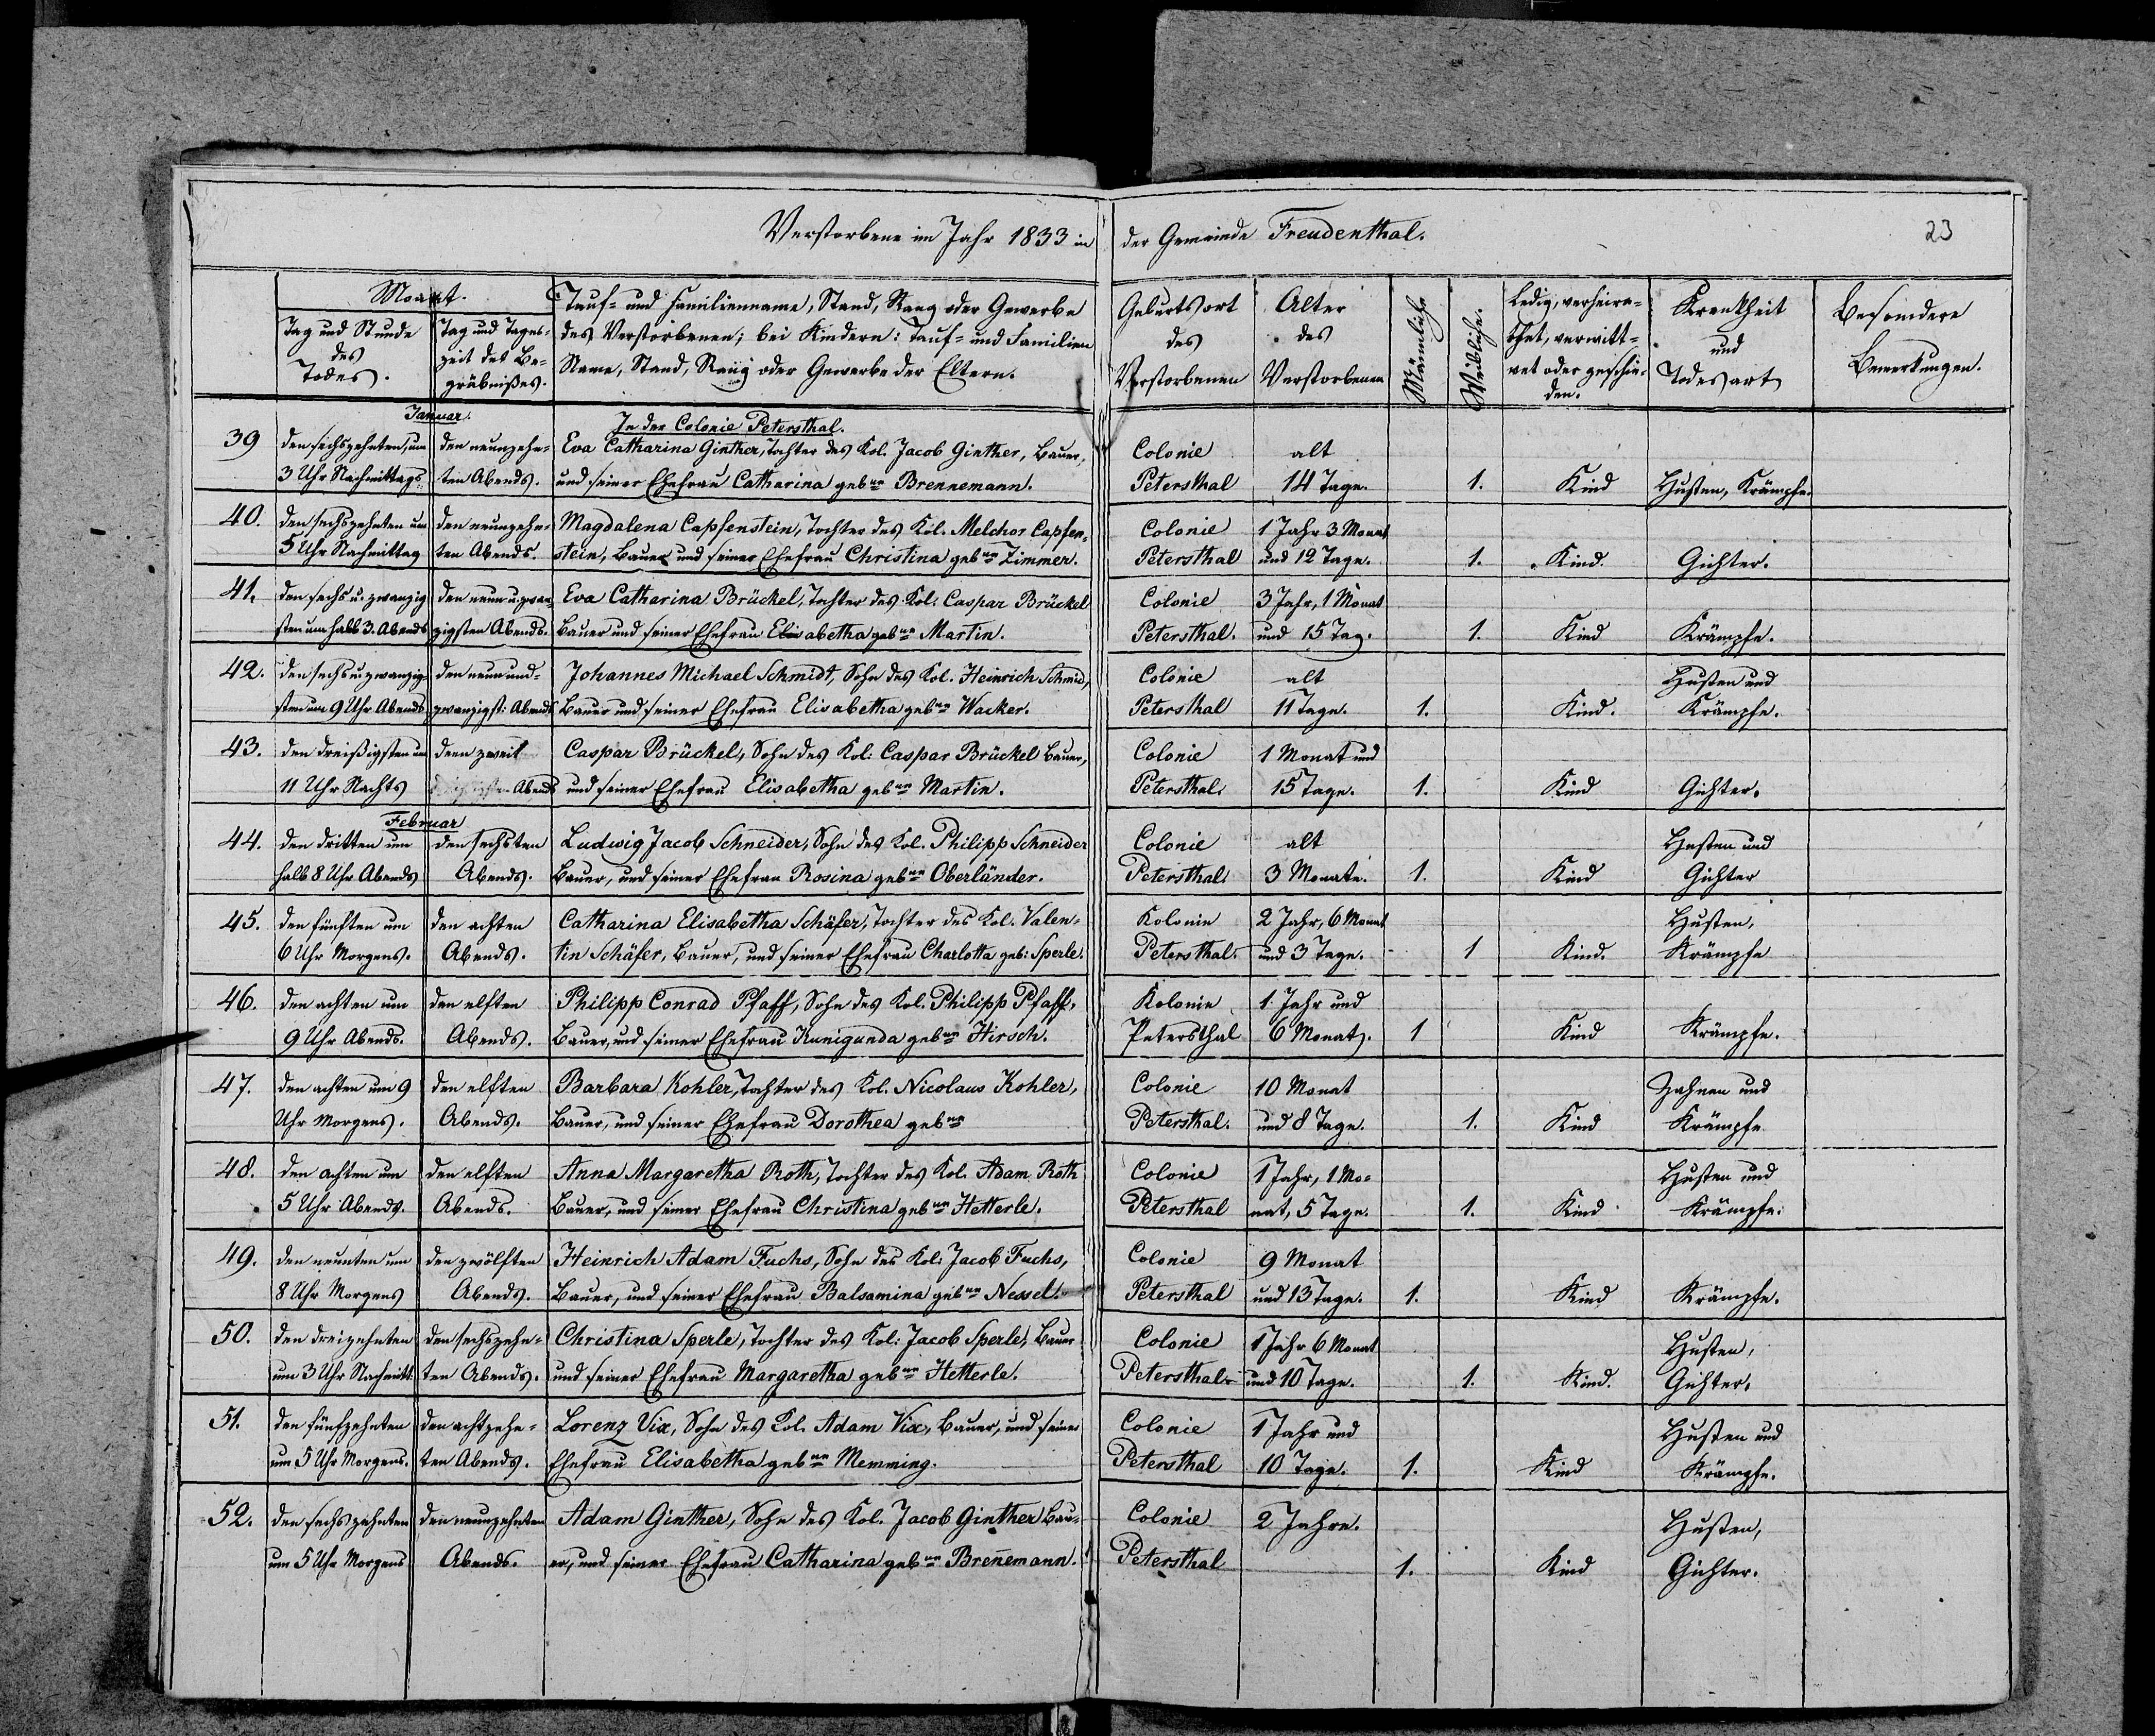 Verstorbene im Jahr 1833 in der Gemeinde Freudenthal. 23
Monat.
Tag und Stunde des Todes.
Tag und Tageszeit des Begräbnißes.
Tauf- und Familienname, Stand, Rang oder Gewerbe
des Verstorbenen; bei Kindern: Tauf- und Familien
Name, Stand, Rang oder Gewerbe der Eltern.
Geburtsort des Verstorbenen
Alter des Verstorbenen
Männliche
Weibliche.
Ledig, verheira-
thet, verwitt-
wet oder geschie-
den.
Krankheit und Todesart
Besondere Bemerkungen.
Januar.
In der Colonie Petersthal.
39 den sechszehnten, um den neunzehn- Eva Catharina Ginther, Tochter des Kol. Jacob Ginther, Bauer, Colonie alt
3 Uhr Nachmittags. ten Abends. und seiner Ehefrau Catharina gebne Brennemann. Petersthal 14 Tage. 1. Kind Husten, Krämpfe.
40. den sechszehnten um den neunzehn- Magdalena Capfenstein, Tochter des Kol. Melchor Capfen- Colonie 1 Jahr 3 Monat
5 Uhr Nachmittag ten Abends. stein, Bauer und seiner Ehefrau Christina gebne Zimmer. Petersthal und 12 Tage. 1. Kind. Gichter.
41. den sechs u. zwanzig den neun u. zwan- Eva Catharina Brückel, Tochter des Kol. Caspar Brückel Colonie 3 Jahr, 1 Monat
sten um halb 3. Abends zigsten Abends. Bauer und seiner Ehefrau Elisabetha gebne Martin. Petersthal. und 15 Tag. 1. Kind Krämpfe.
42. den sechs u. zwanzig- den neun und- Johannes Michael Schmidt, Sohn des Kol. Heinrich Schmid, Colonie alt Husten und
sten um 9 Uhr Abends zwanzigst. Abends Bauer und seiner Ehefrau Elisabetha gebne Wacker. Petersthal 11 Tage. 1. Kind. Krämpfe.
43. den dreißigsten um den zweit Caspar Brückel, Sohn des Kol: Caspar Brückel Bauer, Colonie 1 Monat und
11 Uhr Nachts Abends und seiner Ehefrau Elisabetha gebne Martin. Petersthal. 15 Tage. 1. Kind Gichter.
Februar
44. den dritten um den sechsten Ludwig Jacob Schneider, Sohn des Kol. Philipp Schneider Colonie alt Husten und
halb 8 Uhr Abends Abends. Bauer, und seiner Ehefrau Rosina gebne Oberländer. Petersthal. 3 Monate. 1. Kind Gichter
45. den fünften um den achten Catharina Elisabetha Schäfer, Tochter des Kol. Valen- Kolonie 2 Jahr, 6 Monat Husten,
6 Uhr Morgens. Abends. tin Schäfer, Bauer, und seiner Ehefrau Charlotta geb: Sperle. Petersthal. und 3 Tage. 1 Kind. Krämpfe
46. den achten um den elften Philipp Conrad Pfaff, Sohn des Kol. Philipp Pfaff, Kolonie 1 Jahr und
9 Uhr Abends. Abends. Bauer, und seiner Ehefrau Kunigunda gebne Hirsch. Petersthal 6 Monat. 1 Kind Krämpfe.
47. den achten um 9 den elften Barbara Kohler, Tochter des Kol. Nicolaus Kohler, Colonie 10 Monat Zahnen und
Uhr Morgens. Abends. Bauer, und seiner Ehefrau Dorothea gebne Petersthal. und 8 Tage. 1. Kind Krämpfe
48. den achten um den elften Anna Margaretha Roth, Tochter des Kol. Adam Roth Colonie 1 Jahr, 1 Mo- Husten und
5 Uhr Abends. Abends. Bauer, und seiner Ehefrau Christina gebne Hetterle. Petersthal nat, 5 Tage. 1. Kind Krämpfe.
49. den neunten um den zwölften Heinrich Adam Fuchs, Sohn des Kol: Jacob Fuchs, Colonie 9 Monat
8 Uhr Morgens Abends. Bauer, und seiner Ehefrau Balsamina gebne Nessel. Petersthal und 13 Tage. 1. Kind Krämpfe.
50. den dreizehnten den sechszehn- Christina Sperle, Tochter des Kol: Jacob Sperle, Bauer Colonie 1 Jahr 6 Monat Husten,
um 3 Uhr Nachmitt. ten Abends. und seiner Ehefrau Margaretha gebne Hetterle. Petersthal und 10 Tage. 1. Kind. Gichter.
51. den fünfzehnten den achtzehn- Lorenz Vix, Sohn des Kol. Adam Vix, Bauer, und seiner Colonie 1 Jahr und Husten und
um 5 Uhr Morgens. ten Abends. Ehefrau Elisabetha gebne Memming. Petersthal 10 Tage. 1. Kind Krämpfe.
52. den sechszehnten den neunzehnten Adam Ginther, Sohn des Kol. Jacob Ginther Bau- Colonie 2 Jahre. Husten,
um 5 Uhr Morgens Abends. er, und seiner Ehefrau Catharina gebne Breñemann. Petersthal 1. Kind Gichter.